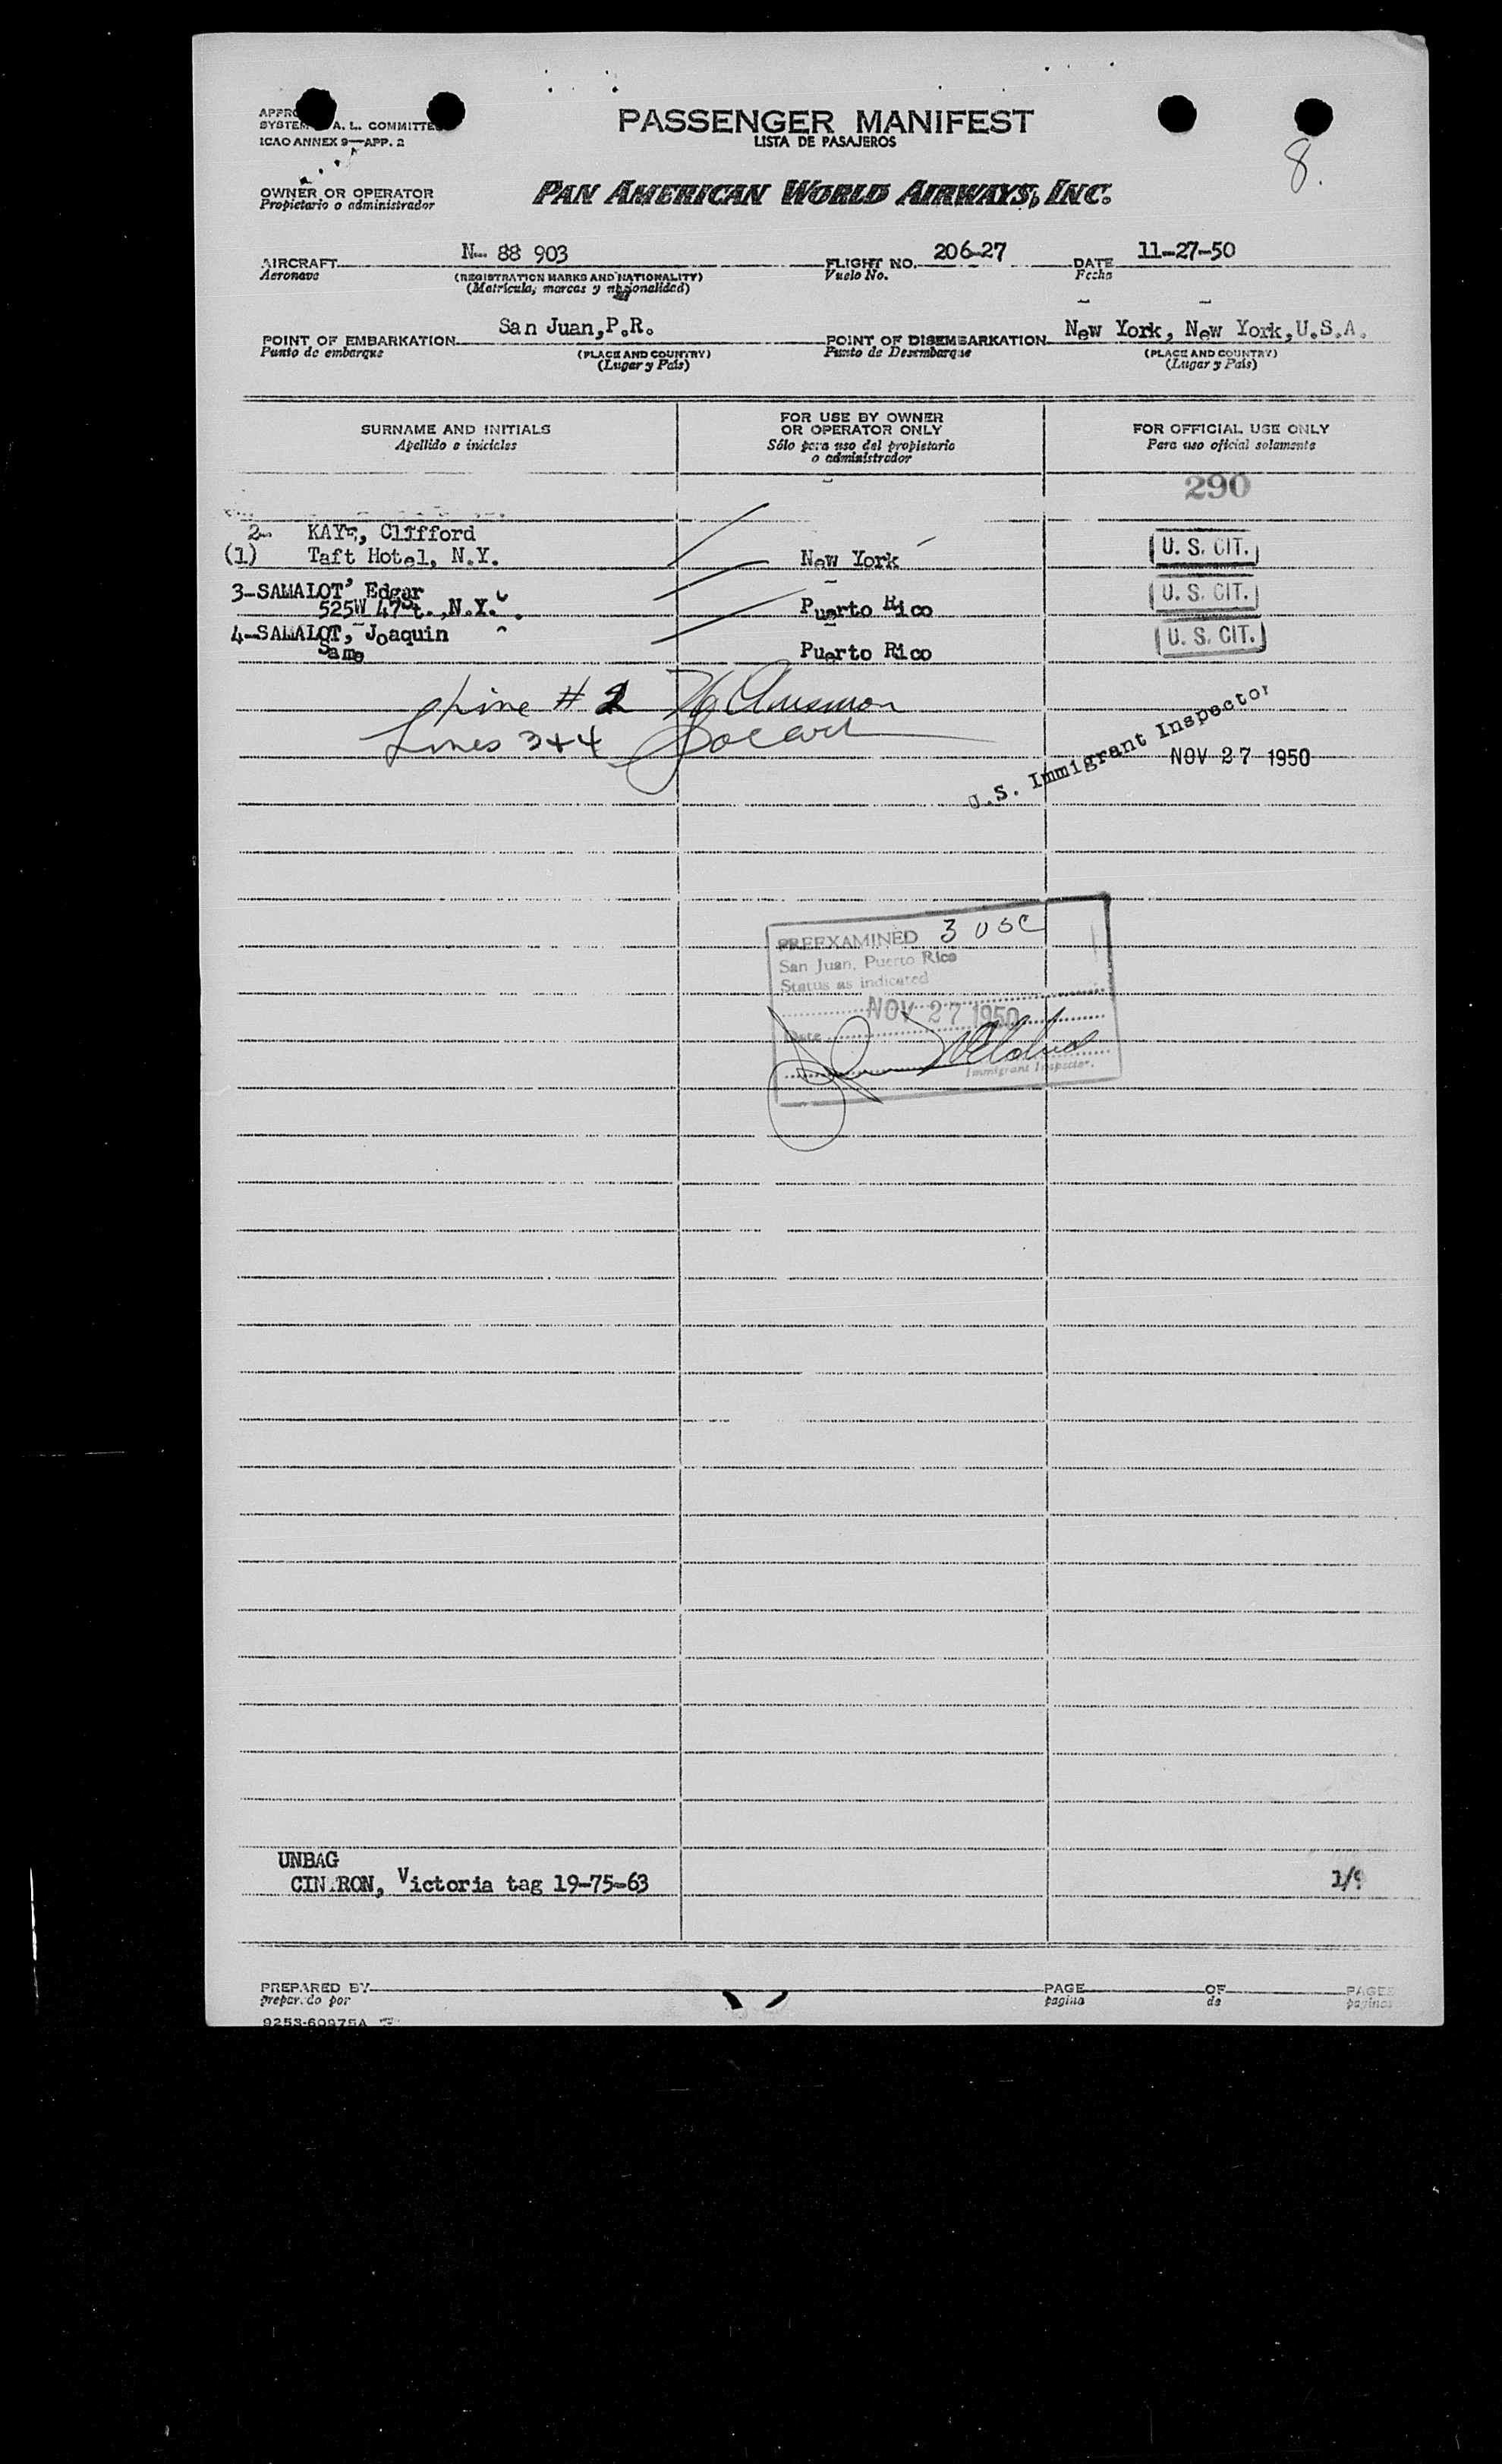 PASSENGER MANIFEST
LISTA DE PASAJEROS
SYSTEM A. L. COMMITTEE
ICAO ANNEX 9—APP. 2
8.
OWNER OR OPERATOR
Propietario o administrador
PAN AMERICAN WORLD AIRWAYS, INC.
AIRCRAFT N- 88 903 FLIGHT NO. 206-27 DATE 11-27-50
Aeronave (REGISTRATION MARKS AND NATIONALITY) Vuelo No. Fecha
(Matrícula, marcas y nacionalidad)
POINT OF EMBARKATION San Juan,P.R. POINT OF DISEMBARKATION New York, New York,U.S.A.
Punto de embarque (PLACE AND COUNTRY) Punto de Desembarque (PLACE AND COUNTRY)
(Lugar y País) (Lugar y País)
SURNAME AND INITIALS FOR USE BY OWNER OR OPERATOR ONLY FOR OFFICIAL USE ONLY
Apellido e iniciales Sólo para uso del propietario o administrador Para uso oficial solamente
290
2- KAYE, Clifford
(1) Taft Hotel, N.Y. New York U. S. CIT.
3-SAMALOT, Edgar
525W 47St., N.Y. Puerto Rico U. S. CIT.
4-SAMALOT, Joaquin
Same Puerto Rico U. S. CIT.
Line # 2
Lines 3+4
U.S. Immigrant Inspector
NOV 27 1950
PREEXAMINED 3 USC
San Juan, Puerto Rico
Status as indicated
NOV 27 1950
Date
Immigrant Inspector.
UNBAG
CINTRON, Victoria tag 19-75-63
PREPARED BY PAGE OF PAGES
preparado por pagina de paginas
9253-60975A